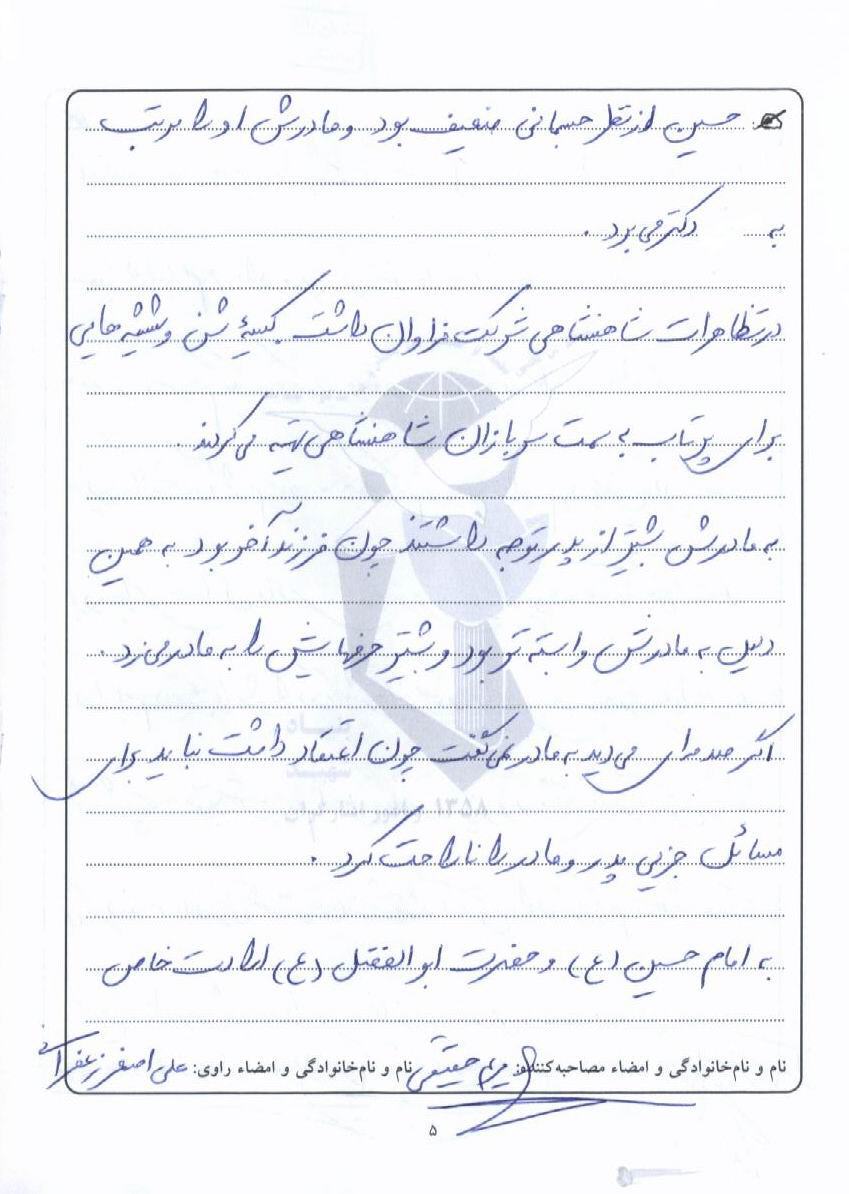 حسین از نظر جسمانی ضعیف بود و مادرش او را مرتب
به دکتر می برد.
در تظاهرات شاهنشاهی شرکت فراوان داشت. کیسهٔ شن و شیشه هایی
برای پرتاب به سمت سربازان شاهنشاهی تهیه می کردند.
به مادرش بیشتر از پدر توجه داشتند چون فرزند آخر بود به همین
دلیل به مادرش وابسته تر بود و بیشتر حرفهایش را به مادر می زد.
اگر صدمه ای می دید به مادر نمی گفت چون اعتقاد داشت نباید برای
مسائل جزیی پدر و مادر را ناراحت کرد.
به امام حسین (ع) و حضرت ابوالفضل (ع) ارادت خاص
نام و نام‌خانوادگی و امضاء مصاحبه‌کننده: مریم حقیقی نام و نام‌خانوادگی و امضاء راوی: علی اصغر زعفرانی
۵
بنیاد
شهید
۱۳۵۸